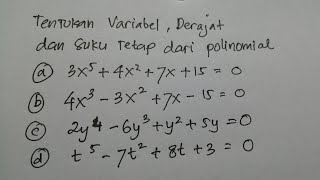 Tentukan Variabel, Derajat
dan suku tetap dari polinomial
(a) 3x⁵ + 4x² + 7x + 15 = 0
(b) 4x³ - 3x² + 7x - 15 = 0
(c) 2y⁴ - 6y³ + y² + 5y = 0
(d) t⁵ - 7t² + 8t + 3 = 0